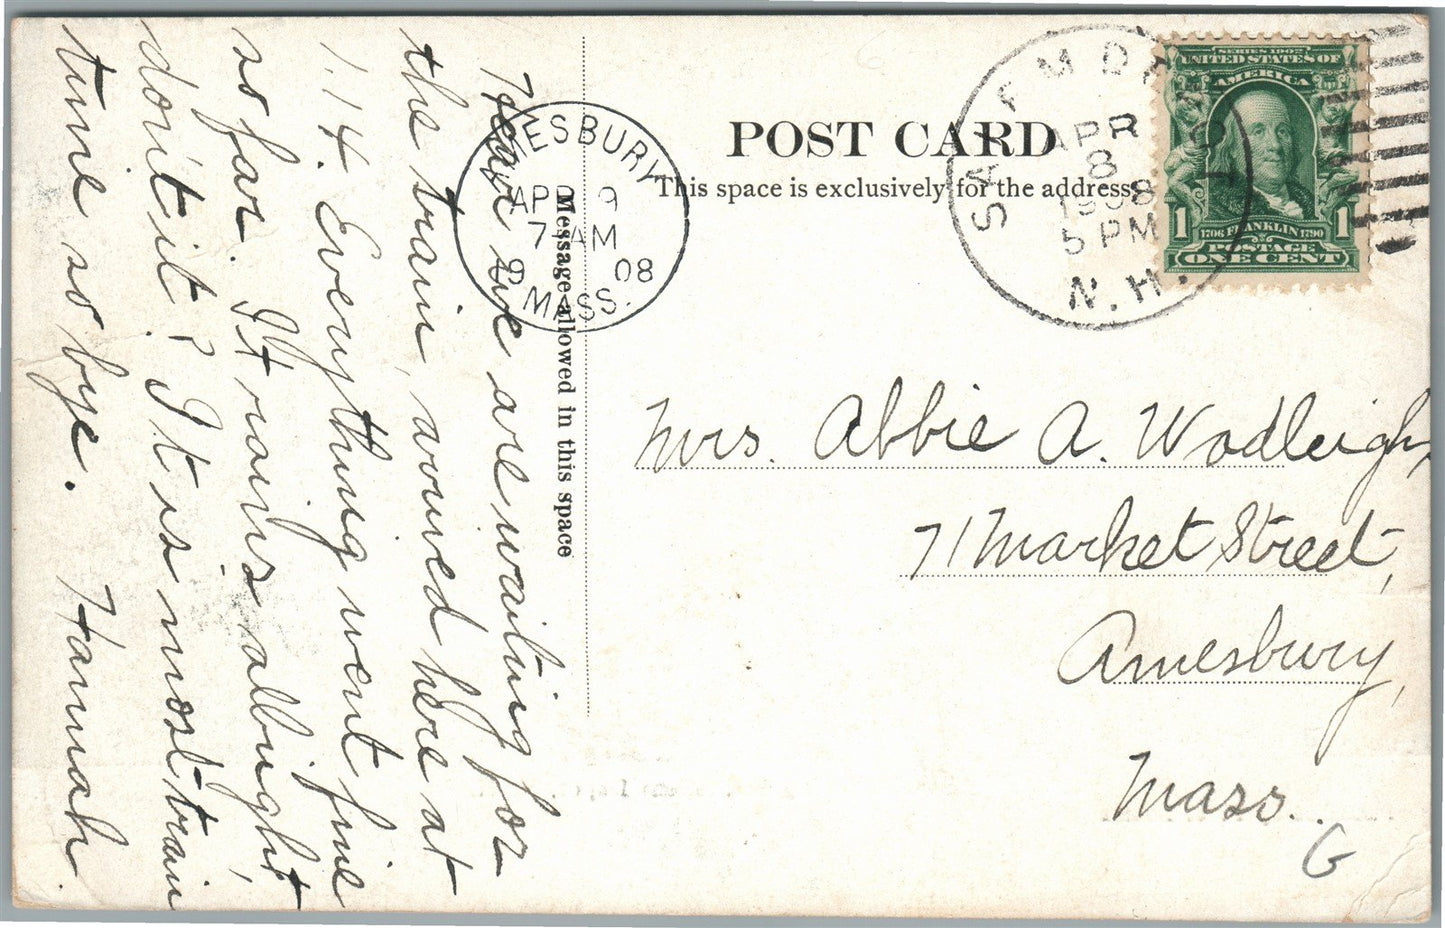 POST CARD
This space is exclusively for the address.
Message allowed in this space
AMESBURY
APR 9
7-AM
9 08
MASS.
APR
8
1908
5 PM
N.H.
SERIES 1902
UNITED STATES OF
AMERICA
1 1
1706 FRANKLIN 1790
POSTAGE
ONE CENT
Here we are waiting for
the train, arrived here at
1.14. Everything went fine
so far. It rains all right,
don't it? It is most train
time so bye. Hannah.
Mrs. Abbie A. Wadleigh,
71 Market Street,
Amesbury,
Mass.
G